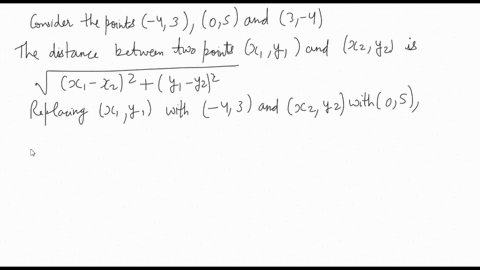 Consider the points (-4,3), (0,5) and (3,-4)
The distance between two points (x₁,y₁) and (x₂,y₂) is
√(x₁-x₂)²+(y₁-y₂)²
Replacing (x₁,y₁) with (-4,3) and (x₂,y₂) with (0,5),